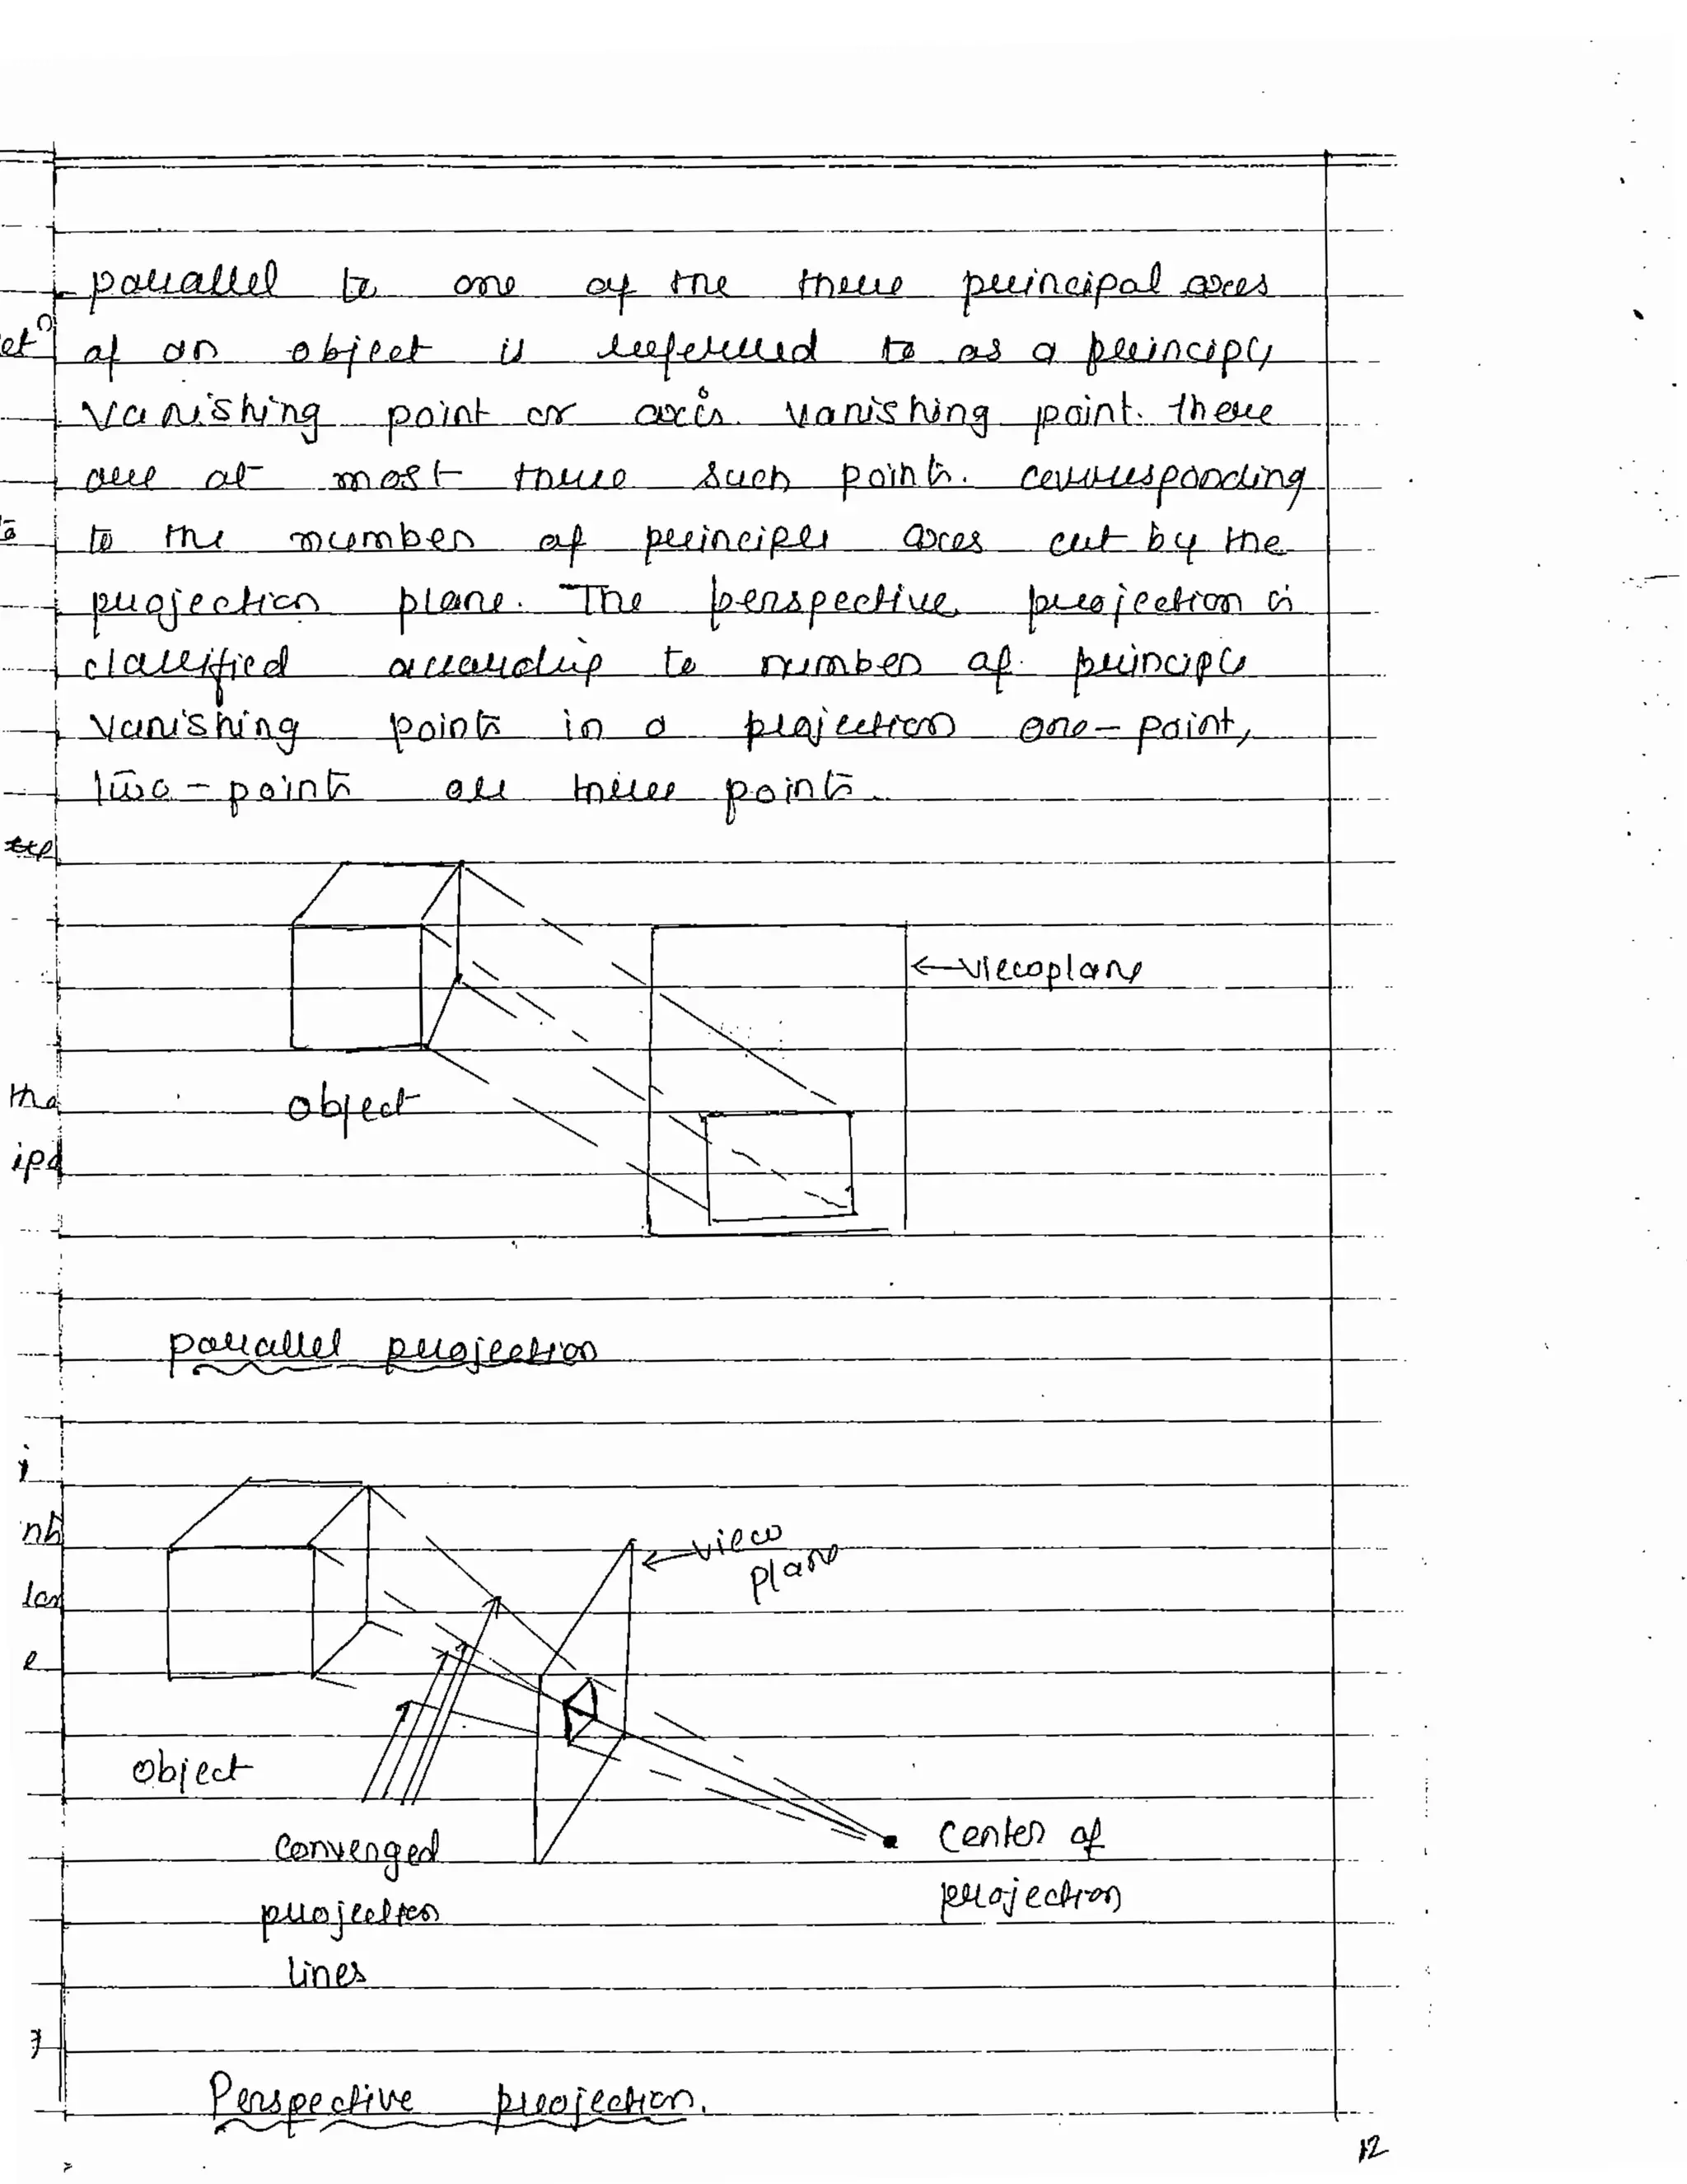 parallel to one of the three principal axes
of an object is referred to as a principle
vanishing point or axis vanishing point. there
are at most three such points. corresponding
to the number of principle axes cut by the
projection plane. The perspective projection is
classified according to number of principle
vanishing points in a projection one-point,
two-points or three points.
← viewplane
object
parallel projection
← view
plane
object
converged
projection
lines
center of
projection
Perspective projection.
12